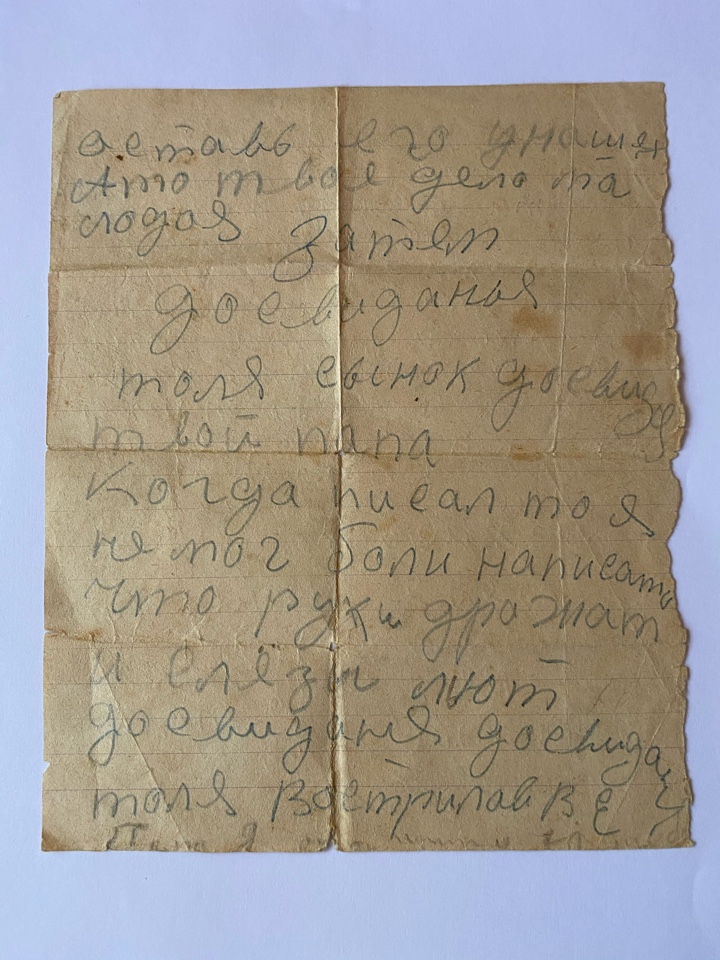 оставь его унашея
Ато твое дело та
лодоя Затем
досвиданья
толя сынок досвида
твой папа
Когда писал то я
не мог боли написать
Что руки дрожат
и слёзы лют
досвиданя досвидан
толя Вострилов В Е